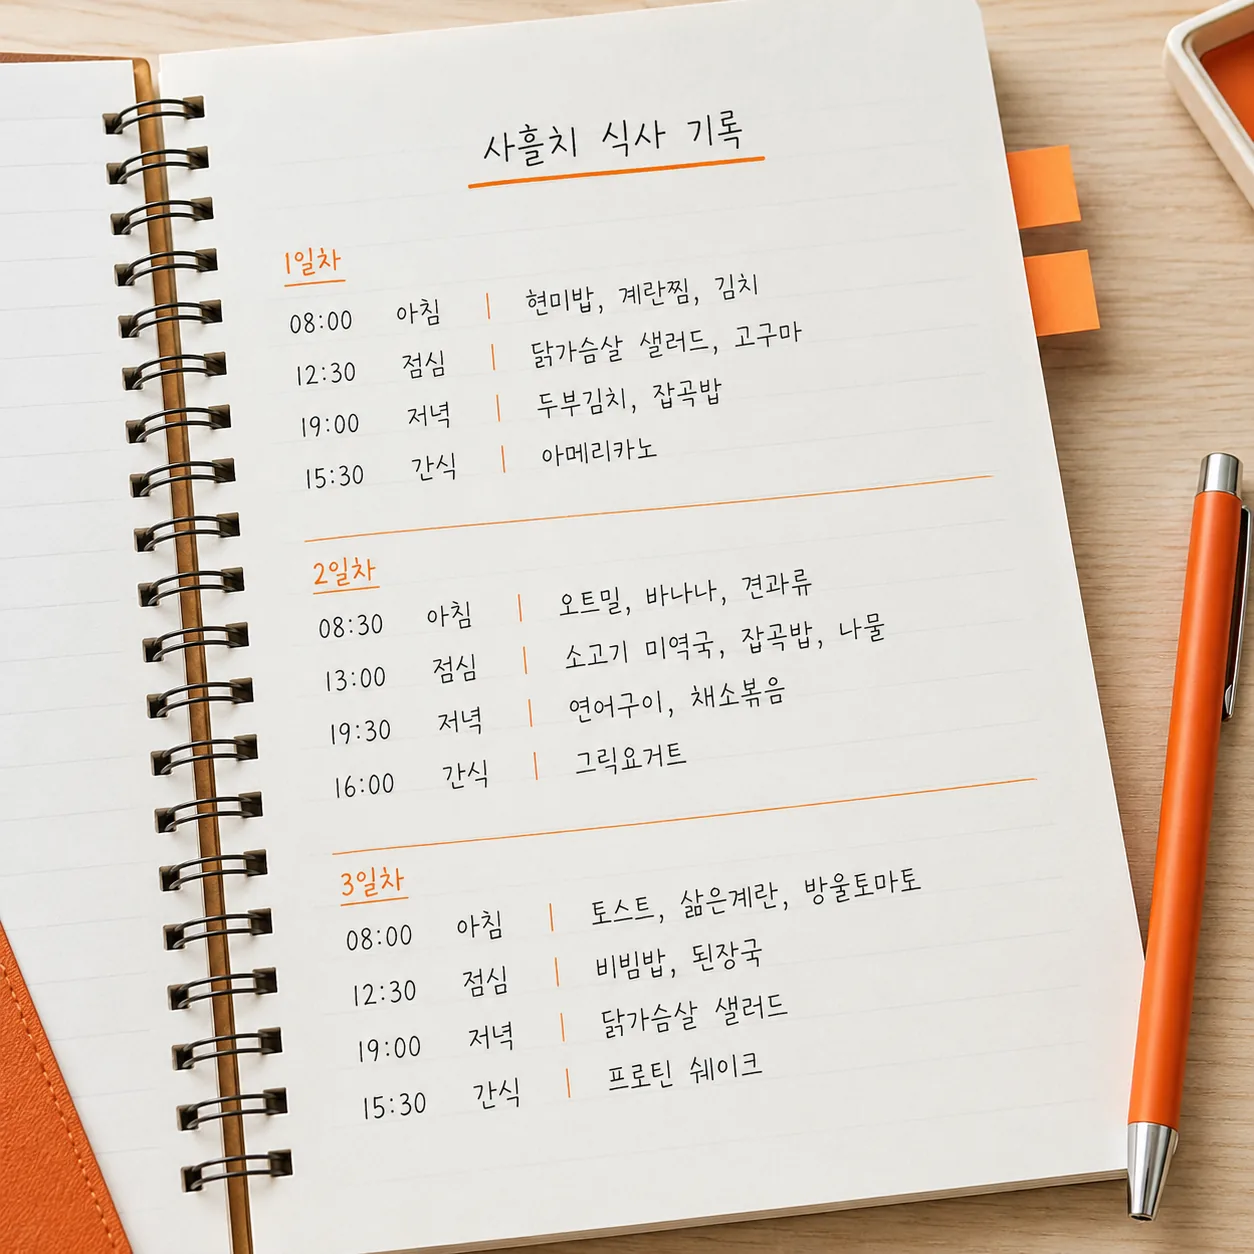 사흘치 식사 기록
1일차
08:00 아침 | 현미밥, 계란찜, 김치
12:30 점심 | 닭가슴살 샐러드, 고구마
19:00 저녁 | 두부김치, 잡곡밥
15:30 간식 | 아메리카노
2일차
08:30 아침 | 오트밀, 바나나, 견과류
13:00 점심 | 소고기 미역국, 잡곡밥, 나물
19:30 저녁 | 연어구이, 채소볶음
16:00 간식 | 그릭요거트
3일차
08:00 아침 | 토스트, 삶은계란, 방울토마토
12:30 점심 | 비빔밥, 된장국
19:00 저녁 | 닭가슴살 샐러드
15:30 간식 | 프로틴 쉐이크